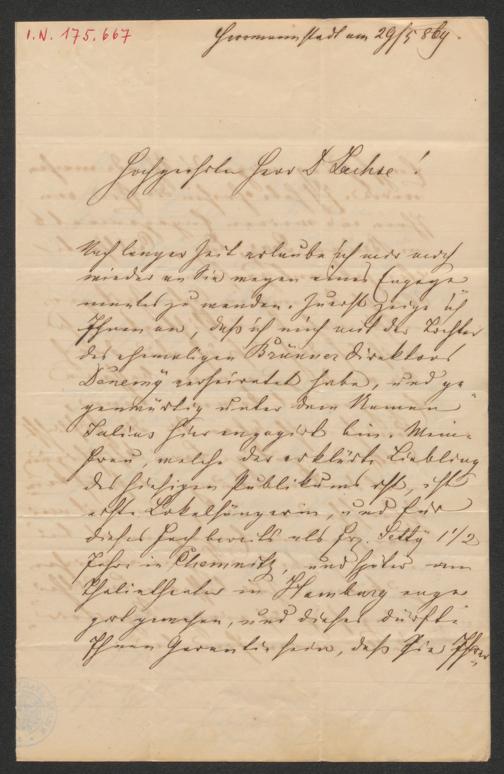 I.N. 175.667
Herrmannstadt am 29/5 869.
Hochgeehrter Herr D Sachse!
Nach langer Zeit erlaube ich mir mich
wieder an Sie wegen eines Engage
mentes zu wenden. Zuerst zeige ich
Ihnen an, daß ich mich mit der Tochter
des ehemaligen Brünner Direktors
verheiratet habe, und ge
genwärtig unter dem Namen
Julius hier engagirt bin. Meine
Frau, welche der erklärte Liebling
des hiesigen Publikums ist, ist
erste Lokalsängerin, und für
dieses Fach bereits als Frl. 1 1/2
Jahre in Chemnitz, und später am
Thaliatheater in Hamburg enga
girt gewesen, und dieses dürfte
Ihnen Garantie sein, daß Sie Ihrer